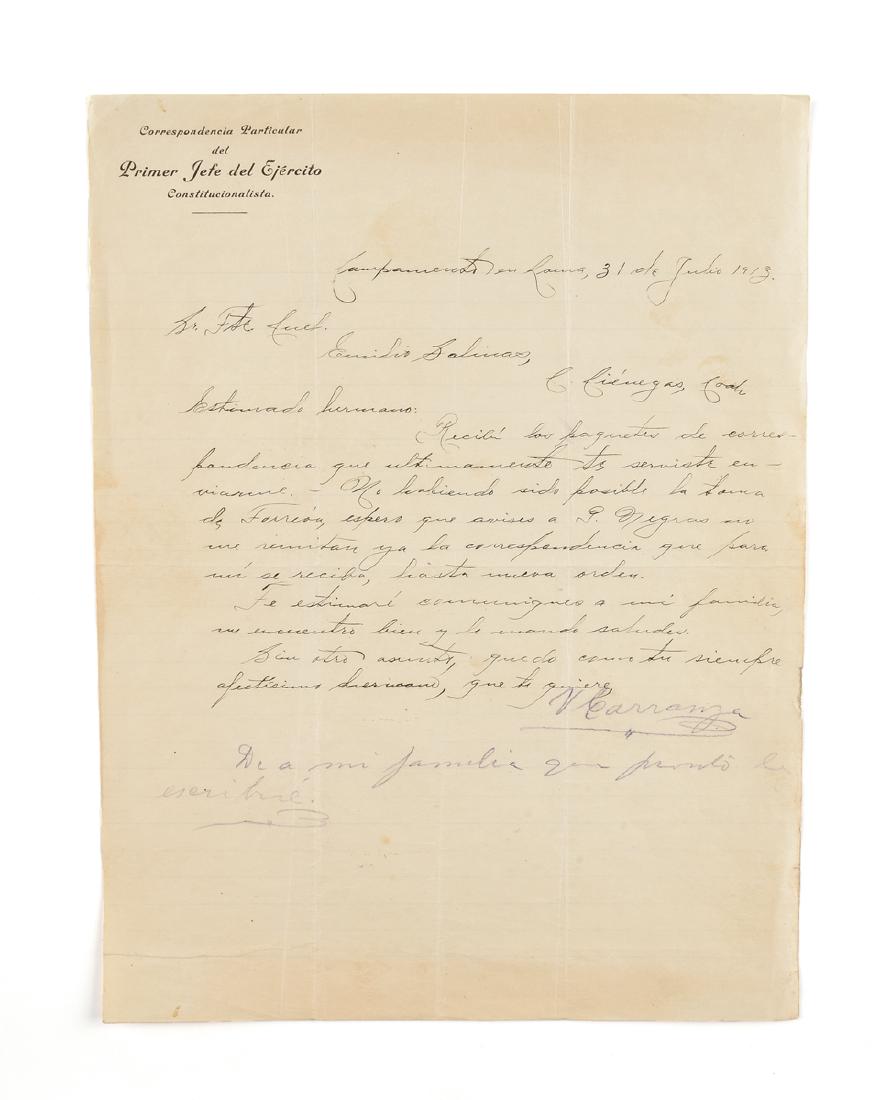 Correspondencia Particular
del
Primer Jefe del Ejército
Constitucionalista.
Campamento en Loma, 31 de Julio 1913.
Sr. Tte Cnel.
Emilio Salinas,
C. Ciénegas, Coah
Estimado hermano:
Recibí los paquetes de corres-
pondencia que ultimamente te serviste en-
viarme. – No habiendo sido posible la toma
de Torreón, espero que avises a P. Negras no
me remitan ya la correspondencia que para
mí se reciba, hasta nueva orden.
Te estimaré comuniques a mi familia,
me encuentro bien y le mando saludos.
Sin otro asunto, quedo como tu siempre
afectísimo hermano, que te quiere
V Carranza
Di a mi familia que pronto le
escribiré.